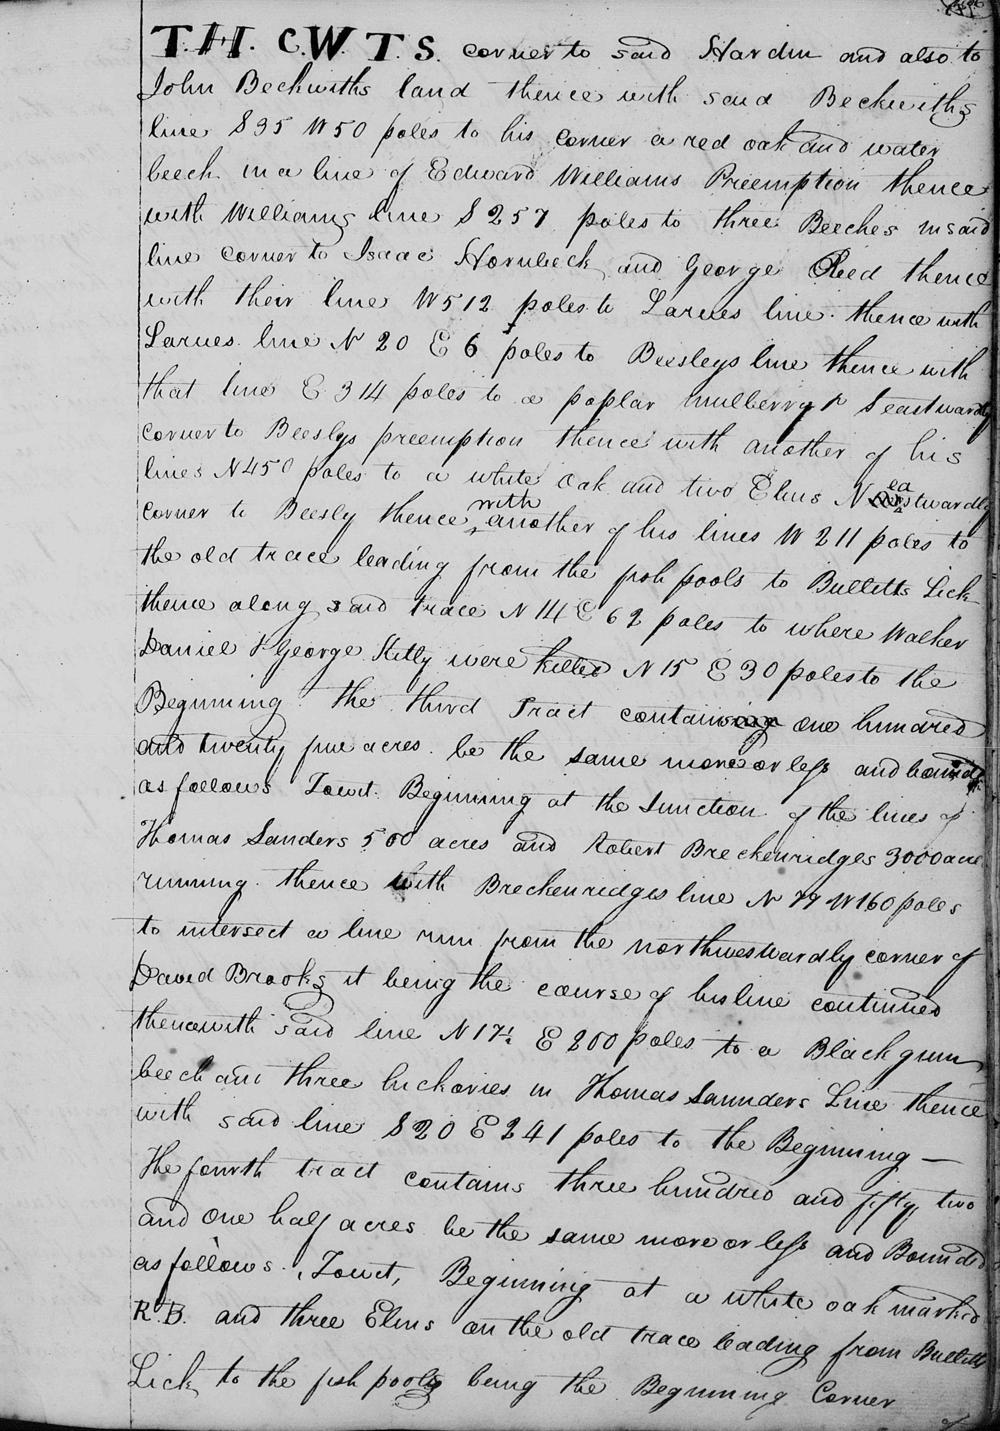 T.H. C.W. T.S. corner to said Hardin and also to
John Beckwiths land thence with said Beckwiths
line S 35 W 50 poles to his corner a red oak and water
beech in a line of Edward Williams Preemption thence
with Williams line S 257 poles to three Beeches in said
line corner to Isaac Hornbeck and George Reed thence
with their line W 512 poles to Larues line thence with
Larues line N 20 E 6 poles to Beesleys line thence with
that line E 314 poles to a poplar mulberry & Seastwardly
corner to Beeslys preemption thence with another of his
lines N 450 poles to a white Oak and two Elms N eastwardly
corner to Beesly thence with another of his lines W 211 poles to
the old trace leading from the fish pools to Bullitts Lick
thence along said trace N 14 E 62 poles to where Walker
Daniel & George Kelly were killed N 15 E 30 poles to the
Beginning the third Tract containing one hundred
and twenty five acres be the same more or less and bounded
as follows Towit. Beginning at the Junction of the lines of
Thomas Sanders 500 acres and Robert Breckenridges 3000 acre
running thence with Breckenridges line N 77 W 160 poles
to intersect a line run from the northwestwardly corner of
David Brooks it being the course of his line continued
thencewith said line N 17½ E 200 poles to a Black gum
beech and three hickories in Thomas Saunders Line thence
with said line S 20 E 241 poles to the Beginning —
The fourth tract contains three hundred and fifty two
and one half acres be the same more or less and Bounded
as follows. Towit, Beginning at a white oak marked
R.B. and three Elms on the old trace leading from Bullitts
Lick to the fish pools being the Beginning Corner
of